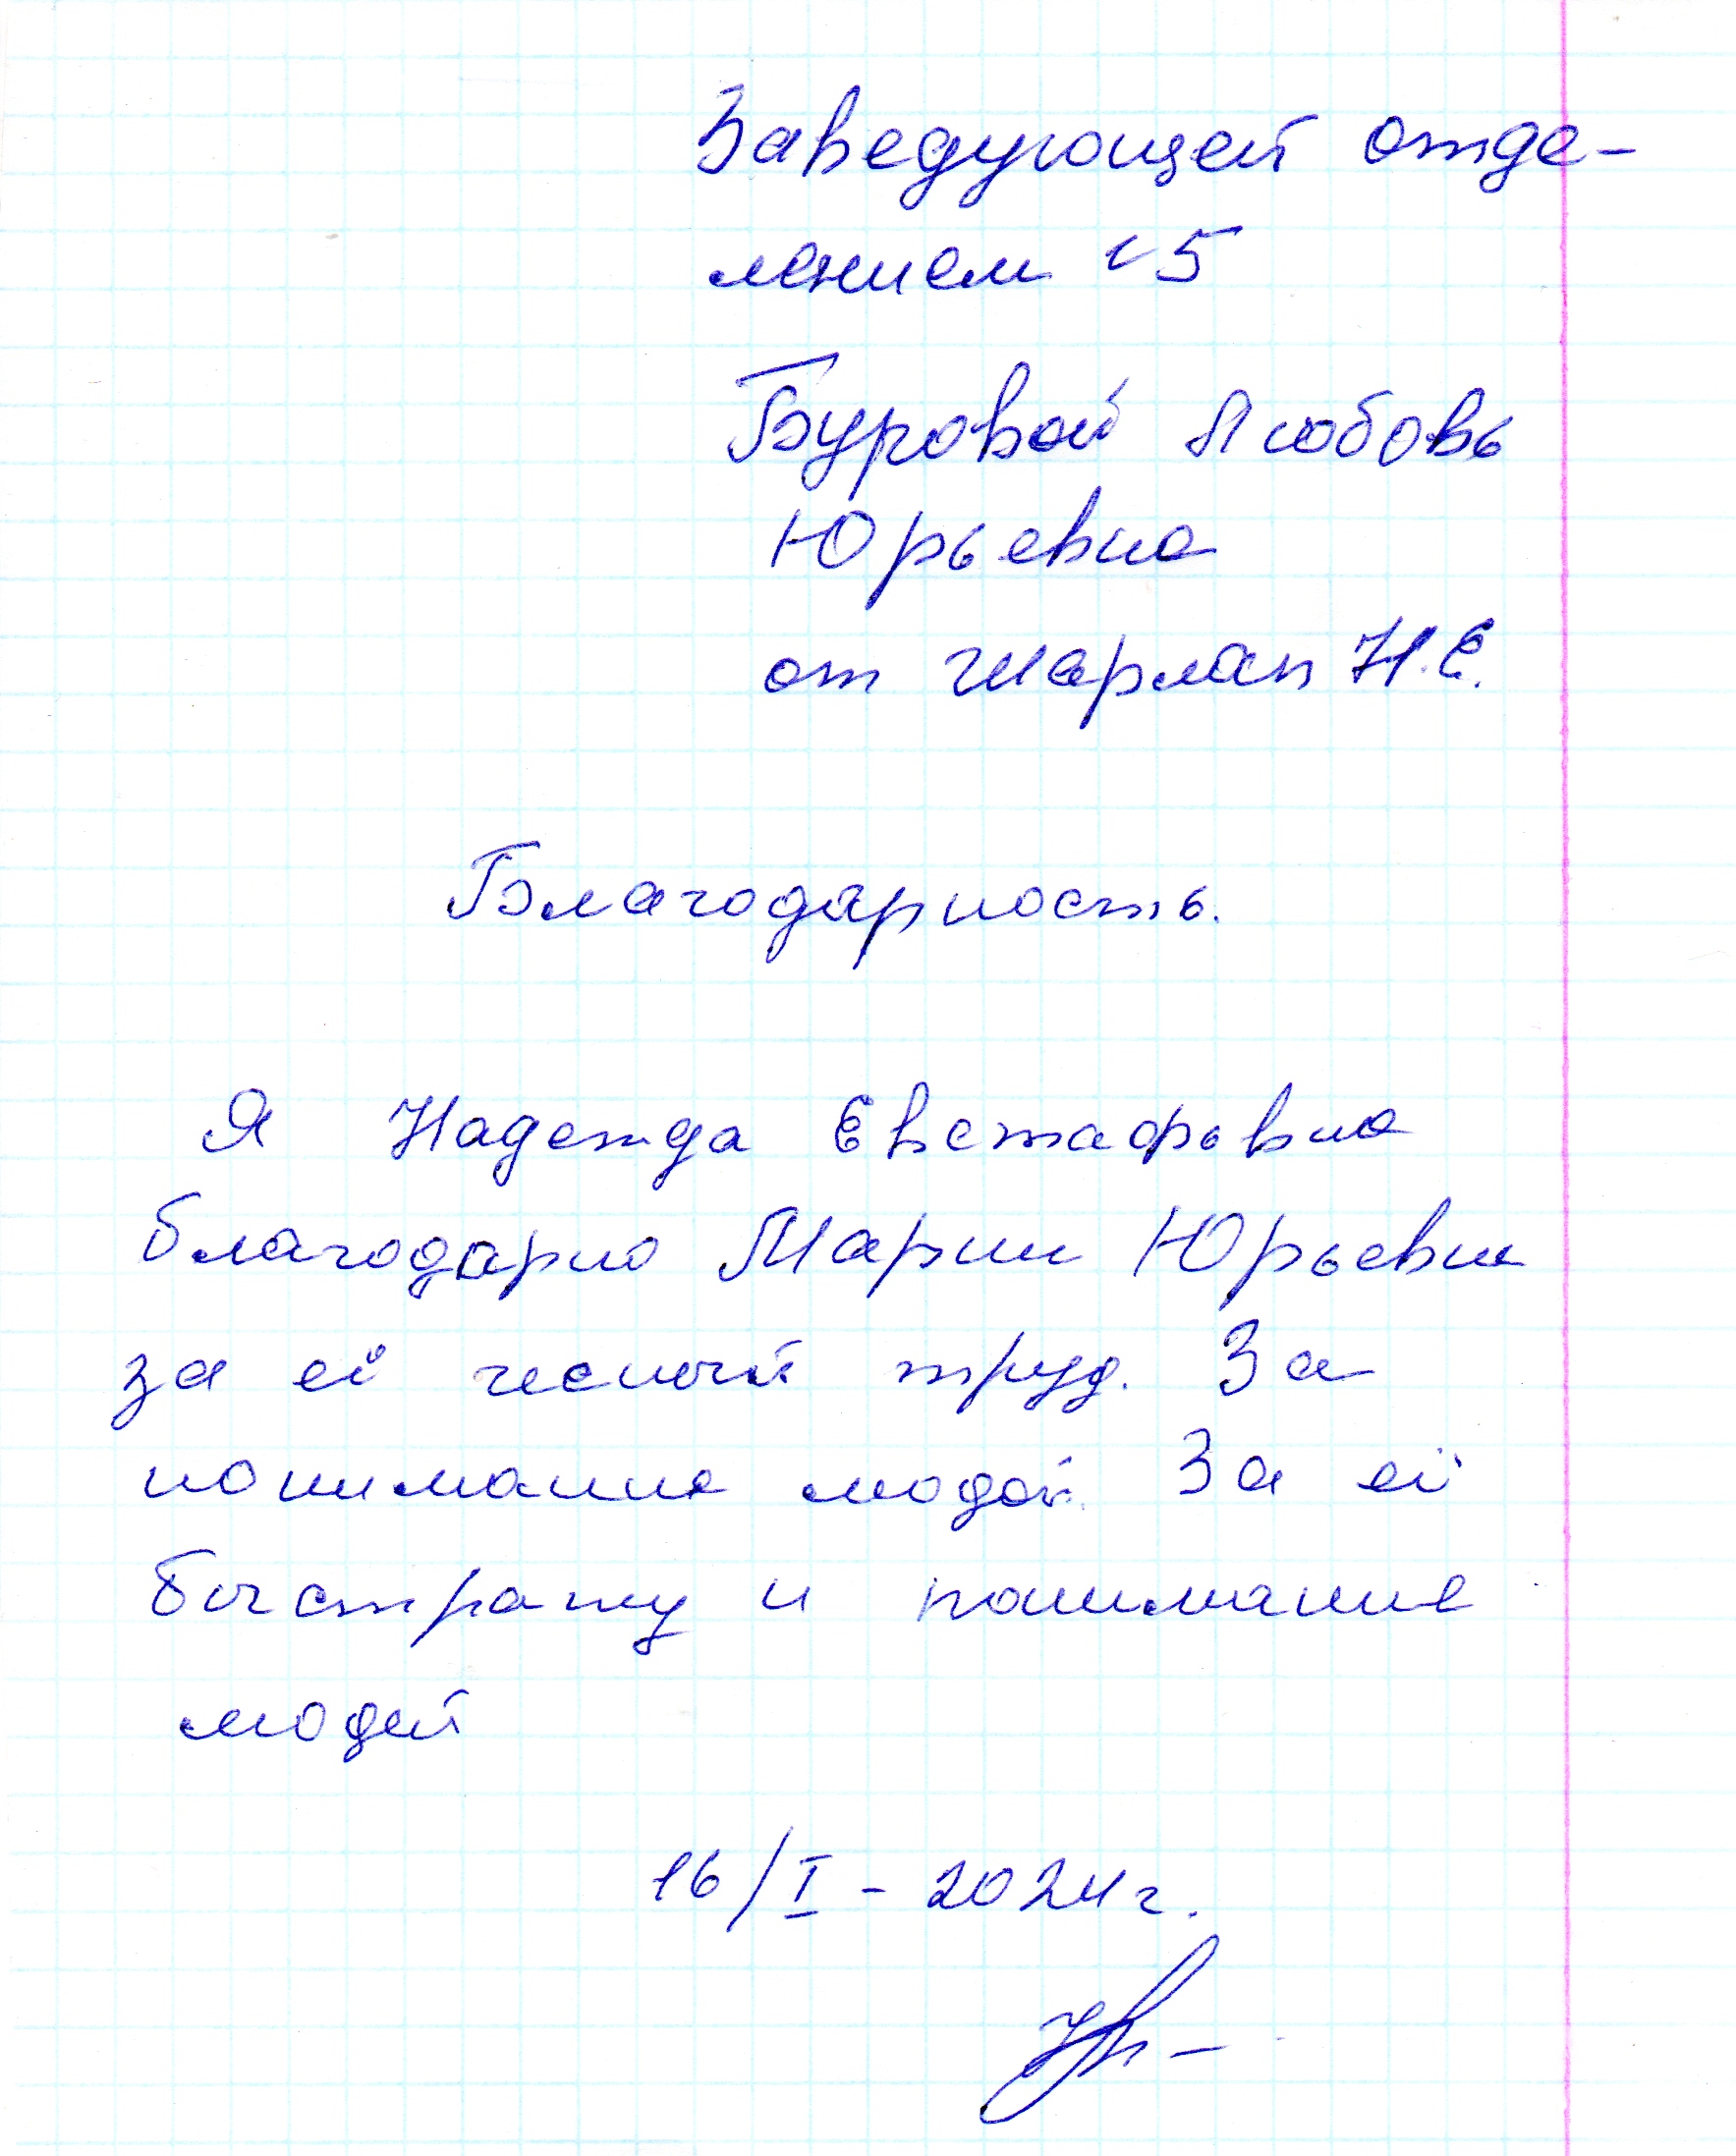 Заведующей отде-
лением 15
Буровой Любовь
Юрьевна
от Шарлап Н.Е.
Благодарность.
Я Надежда Евстафьевна
благодарю Марии Юрьевны
за её чесный труд. За
понимание людей. За её
быстрату и понимание
людей
16/I - 2024г.